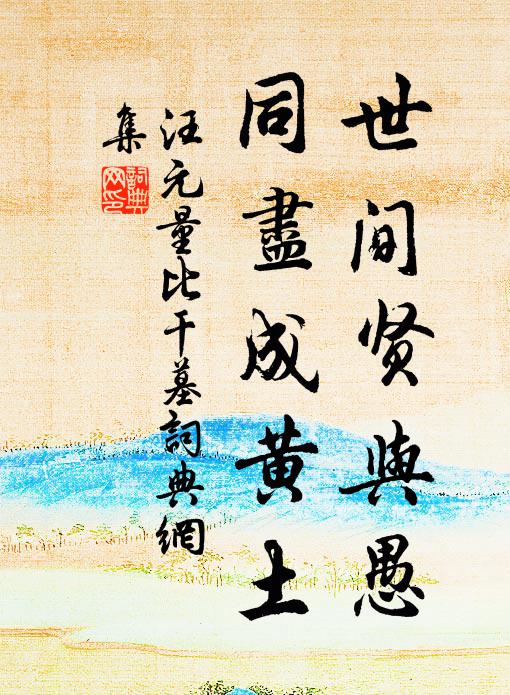 世间贤與愚
同盡成黄土
汪元量比干墓詞典網
集
詞典
网印